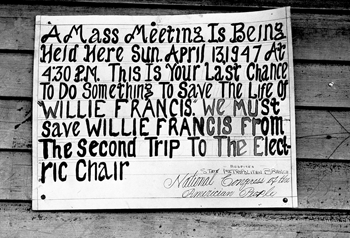 A Mass Meeting Is Being
Held Here Sun. April 13, 1947 At
4:30 P.M. This Is Your Last Chance
To Do Something To Save The Life Of
WILLIE FRANCIS. We Must
save WILLIE FRANCIS From
The Second Trip To The Elect-
ric Chair
National Congress of the
American People